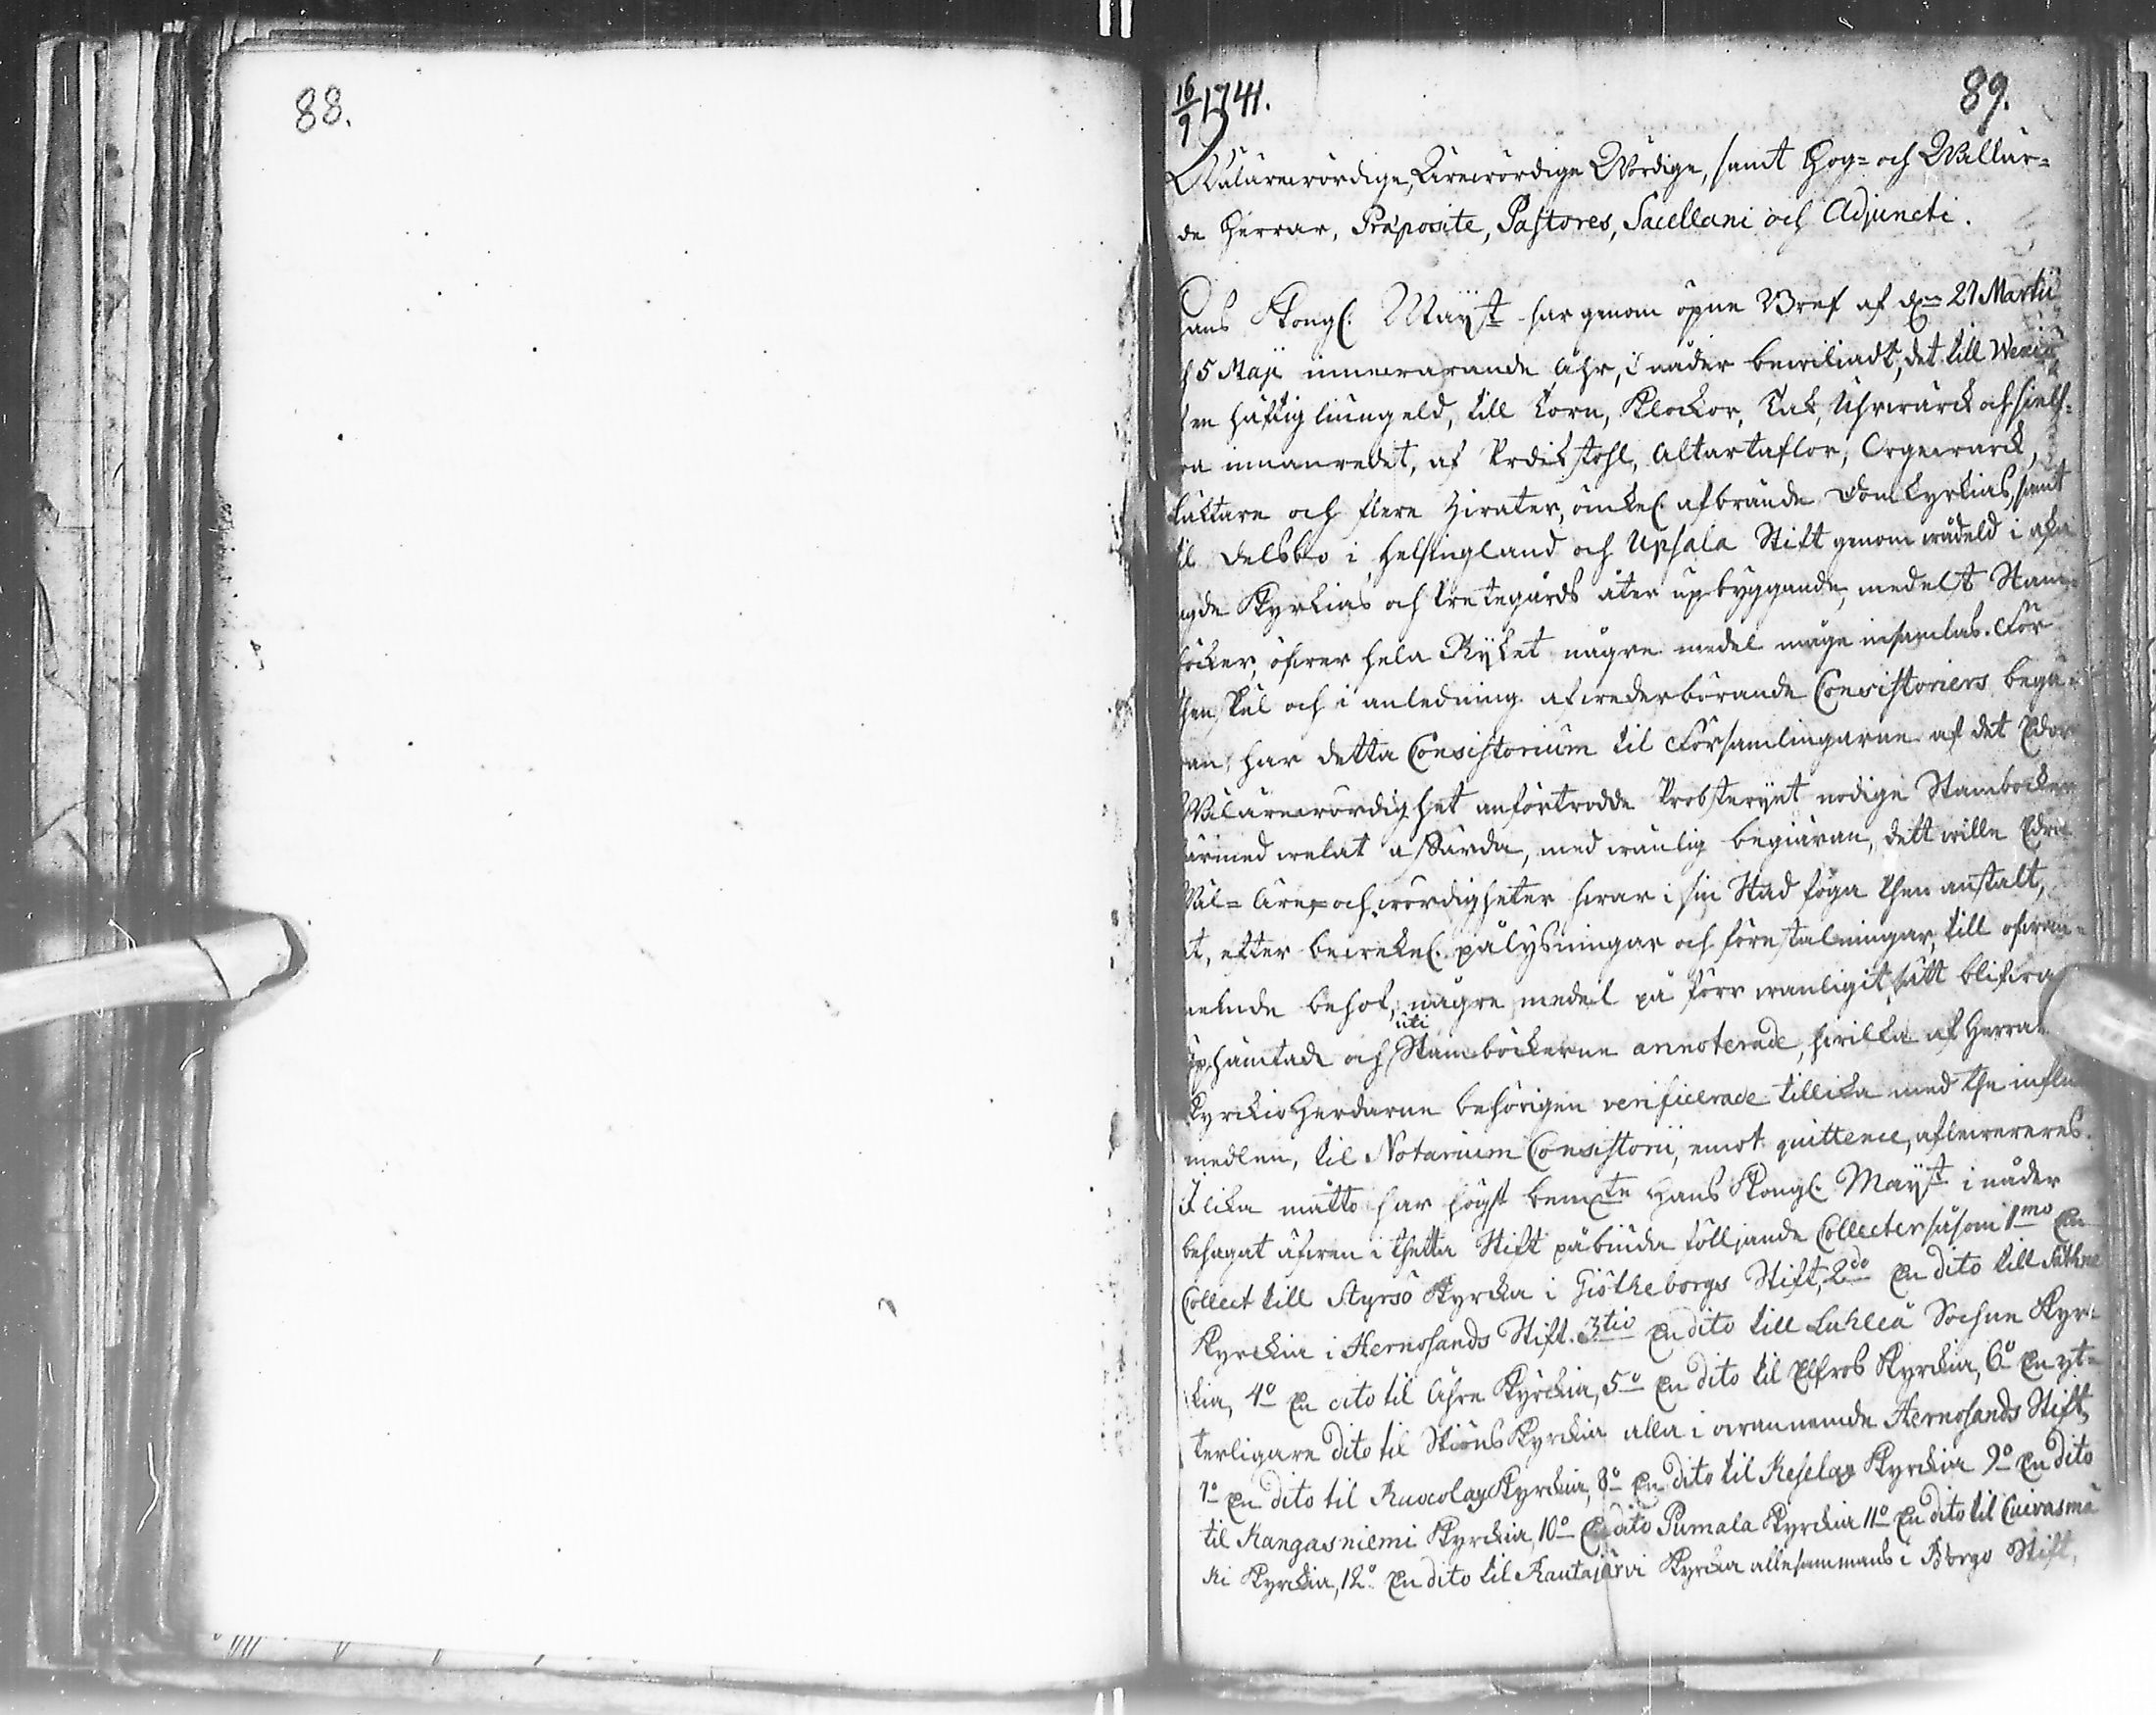 88.
16/9 1741.
89.
Wälärewördige, Ärewördige Wördige, samt Hög= och Wällär=
de Herrar, Præposite, Pastores, Sacellani och Adjuncti.
Hans Kongl. Maÿt har genom öpne Bref af den 27 Martii
5 Maji innewarande åhr, i nåder bewiliadt, det till Wexiö
häftig liungeld, till torn, Klockor, tak, Uhrwärck och sielf=
innanredet, af Predikstohl, Altartaflor, Orgewerck,
läktare och flere Zirater, ömkel. afbrände Domkyrkias, samt
til Delsbo i Helsingland och Upsala Stift genom wådeld i aska
lagde Kyrkias och Prestegårds åter upbyggande, medelst Stam=
böcker, öfwer hela Ryket någre medel måge insamlas. För
then skul och i anledning af wederbörande Consistoriers begä=
ran, har detta Consistorium til Församlingarne af det Eder
Wälärewördighet anförtrodde Probsteriet nödige Stamböcker
härmed welat afsända, med wänlig begiäran, dett wille Edre
Wäl= Äre= och wördigheter hwar i sin Stad foga then anstalt,
at, efter bewekel. pålysningar och föreställningar, till ofwan=
nemde behof, någre medel på förr wanligit sätt blifwa
uphämtade och uti Stamböckerne annoterade, hwilka af Herrar
Kyrckio Herdarne behörigen verificerade tillika med the influtne
medlen, til Notarium Consistorii, emot quittence, aflewereres.
I lika måtto har högst bemte Hans Kongl. Maÿt i nåder
behagat äfwen i thetta Stift påbiuda följande Collecter såsom 1mo En
Collect till Styrsö Kyrcka i Giötheborgs Stift, 2do En dito till Säthne
Kyrckia i Hernosands Stift. 3tio En dito till Luhleå Sochne Kyr=
kia, 4o En dito til Åhre Kyrckia, 5o En dito til Elfros Kyrckia, 6o En yt=
terligare dito til Skiöns Kyrckia alla i owannemde Hernosands Stift,
7o En dito til Ruocolax Kyrckia, 8o En dito til Keselax Kyrckia 9o En dito
til Kangasniemi Kyrckia, 10o En dito Pumala Kyrckia 11o En dito til Cuivasmä
ki Kyrckia, 12o En dito til Rautajärvi Kyrcka allesammans i Borgo Stift,